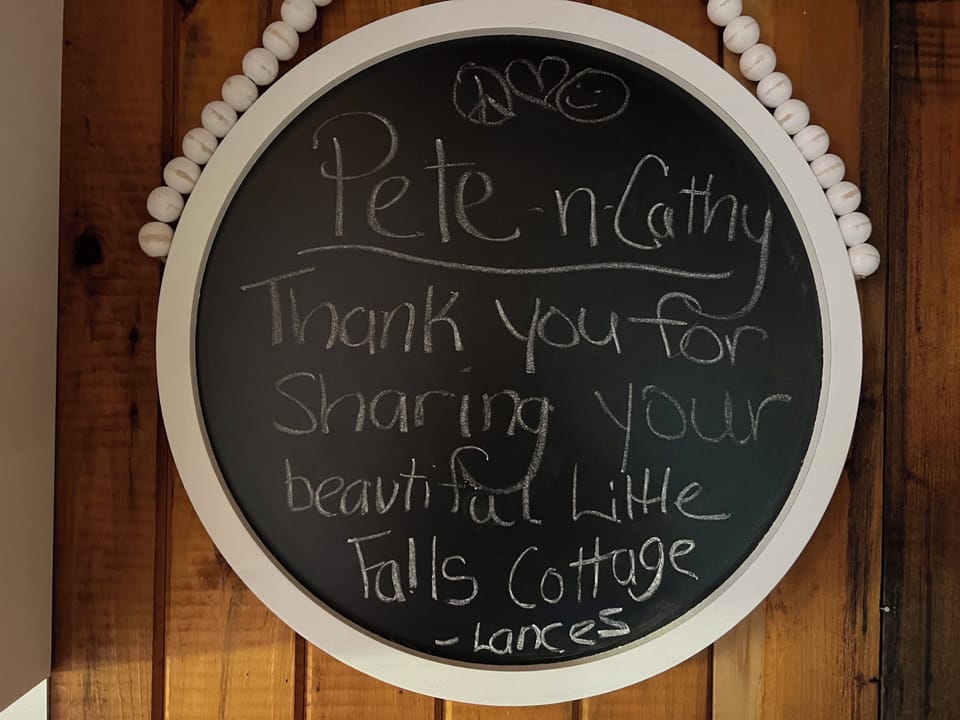 Pete-n-Cathy
Thank you for
Sharing your
beautiful Little
Falls Cottage
- Lances